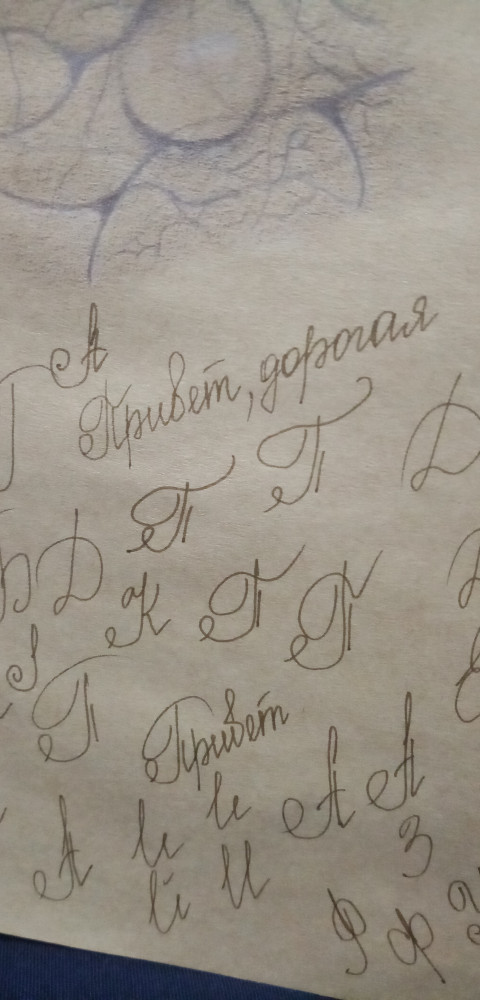 А
Г Привет, дорогая
П П Д
Д К П П
П Привет
А и и А А
и и З
Ф Ф